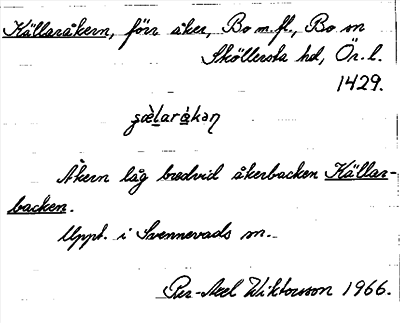 Källaråkern, förr åker, Bo m.fl., Bo sn
Sköllersta hd, Ör. l.
1429.
Åkern låg bredvid åkerbacken Källar-
backen.
Uppt. i Svennevads sn.
Per-Axel Wiktorsson 1966.